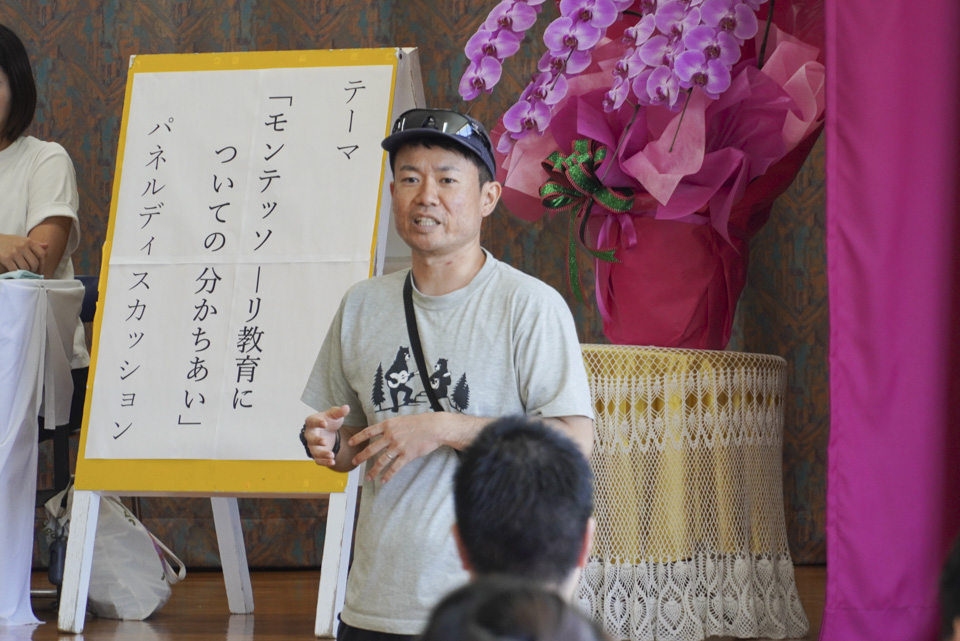 テーマ
「モンテッソーリ教育に
ついての分かちあい」
パネルディスカッション